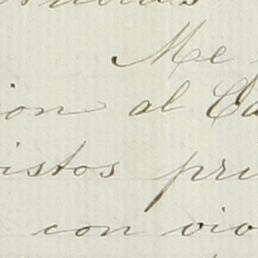 Me
ion al Ca
istos pri
con vio